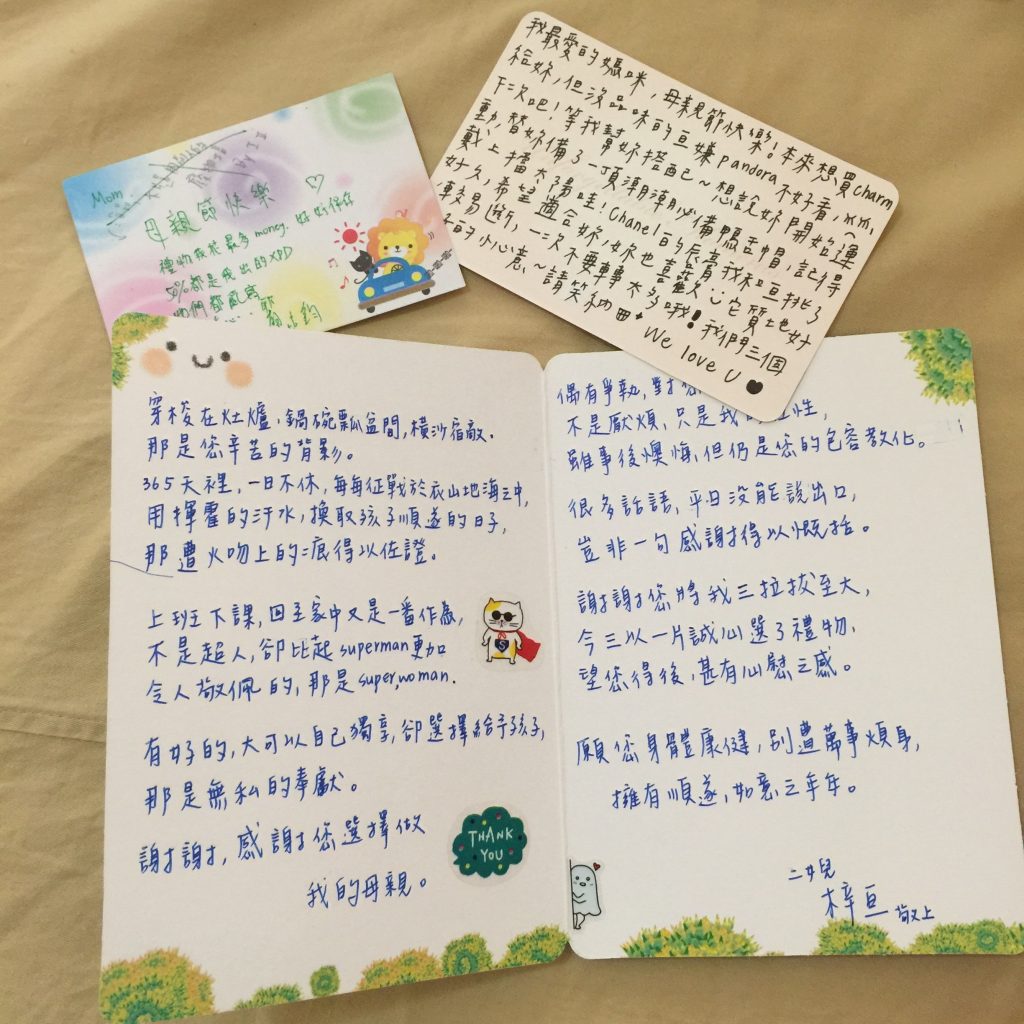 Mom
母親節快樂 ♡
禮物我花最多 money. 好好保存
50%都是我出的XDD
他們都
我最愛的媽咪，母親節快樂！本來想買charm
給妳，但沒品味的亘嫌pandora不好看，
下次吧！等我幫妳搭配～想說妳開始運
動，替妳備了一頂潮潮必備鴨舌帽，記得
戴上擋太陽哇！Chanel的
好久，希望適合妳，妳也喜歡:)它質地好
較易斷，一次不要轉太多哦！我們三個
的小心意～請笑納
We love U ♥
穿梭在灶爐，鍋碗瓢盆間，橫沙宿敵。
那是您辛苦的背影。
365天裡，一日不休，每每征戰於衣山地海之中，
用揮霍的汗水，換取孩子順遂的日子，
那遭火吻上的痕得以佐證。
上班下課，回至家中又是一番作為，
不是超人，卻比起superman更加
令人敬佩的，那是superwoman.
有好的，大可以自己獨享，卻選擇給予孩子，
那是無私的奉獻。
謝謝，感謝您選擇做
我的母親。
THANK
YOU
偶有爭執，對
不是厭煩，只是我 性，
雖事後懊悔，但仍是您的包容教化。
很多話語，平日沒能說出口，
豈非一句感謝得以概括。
謝謝您將我三拉拔至大，
今三以一片誠心選了禮物，
望您得後，甚有心慰之感。
願您身體康健，別遭萬事煩身，
擁有順遂，如意之年年。
二女兒
梓亘 敬上